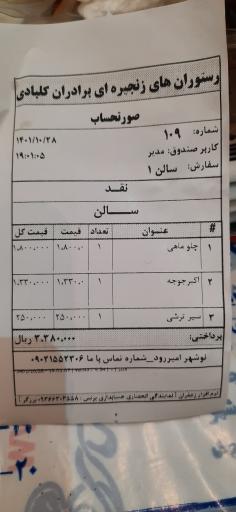 رستوران های زنجیره ای برادران کلبادی
صورتحساب
شماره: ۱۰۹
۱۴۰۱/۱۰/۲۸
کاربر صندوق: مدیر
۱۹:۰۱:۰۵
سفارش: سالن ۱
نقد
سالن
# عنوان تعداد قیمت قیمت کل
۱ چلو ماهی ۱ ۱.۸۰۰.۰۰۰ ۱.۸۰۰.۰۰۰
۲ اکبرجوجه ۱ ۱.۳۳۰.۰۰۰ ۱.۳۳۰.۰۰۰
۳ سیر ترشی ۱ ۲۵۰.۰۰۰ ۲۵۰.۰۰۰
پرداختی: ۳.۳۸۰.۰۰۰ ریال
نوشهر امیررود_شماره تماس با ما ۰۹۰۲۱۵۵۲۳۰۶
۲۰